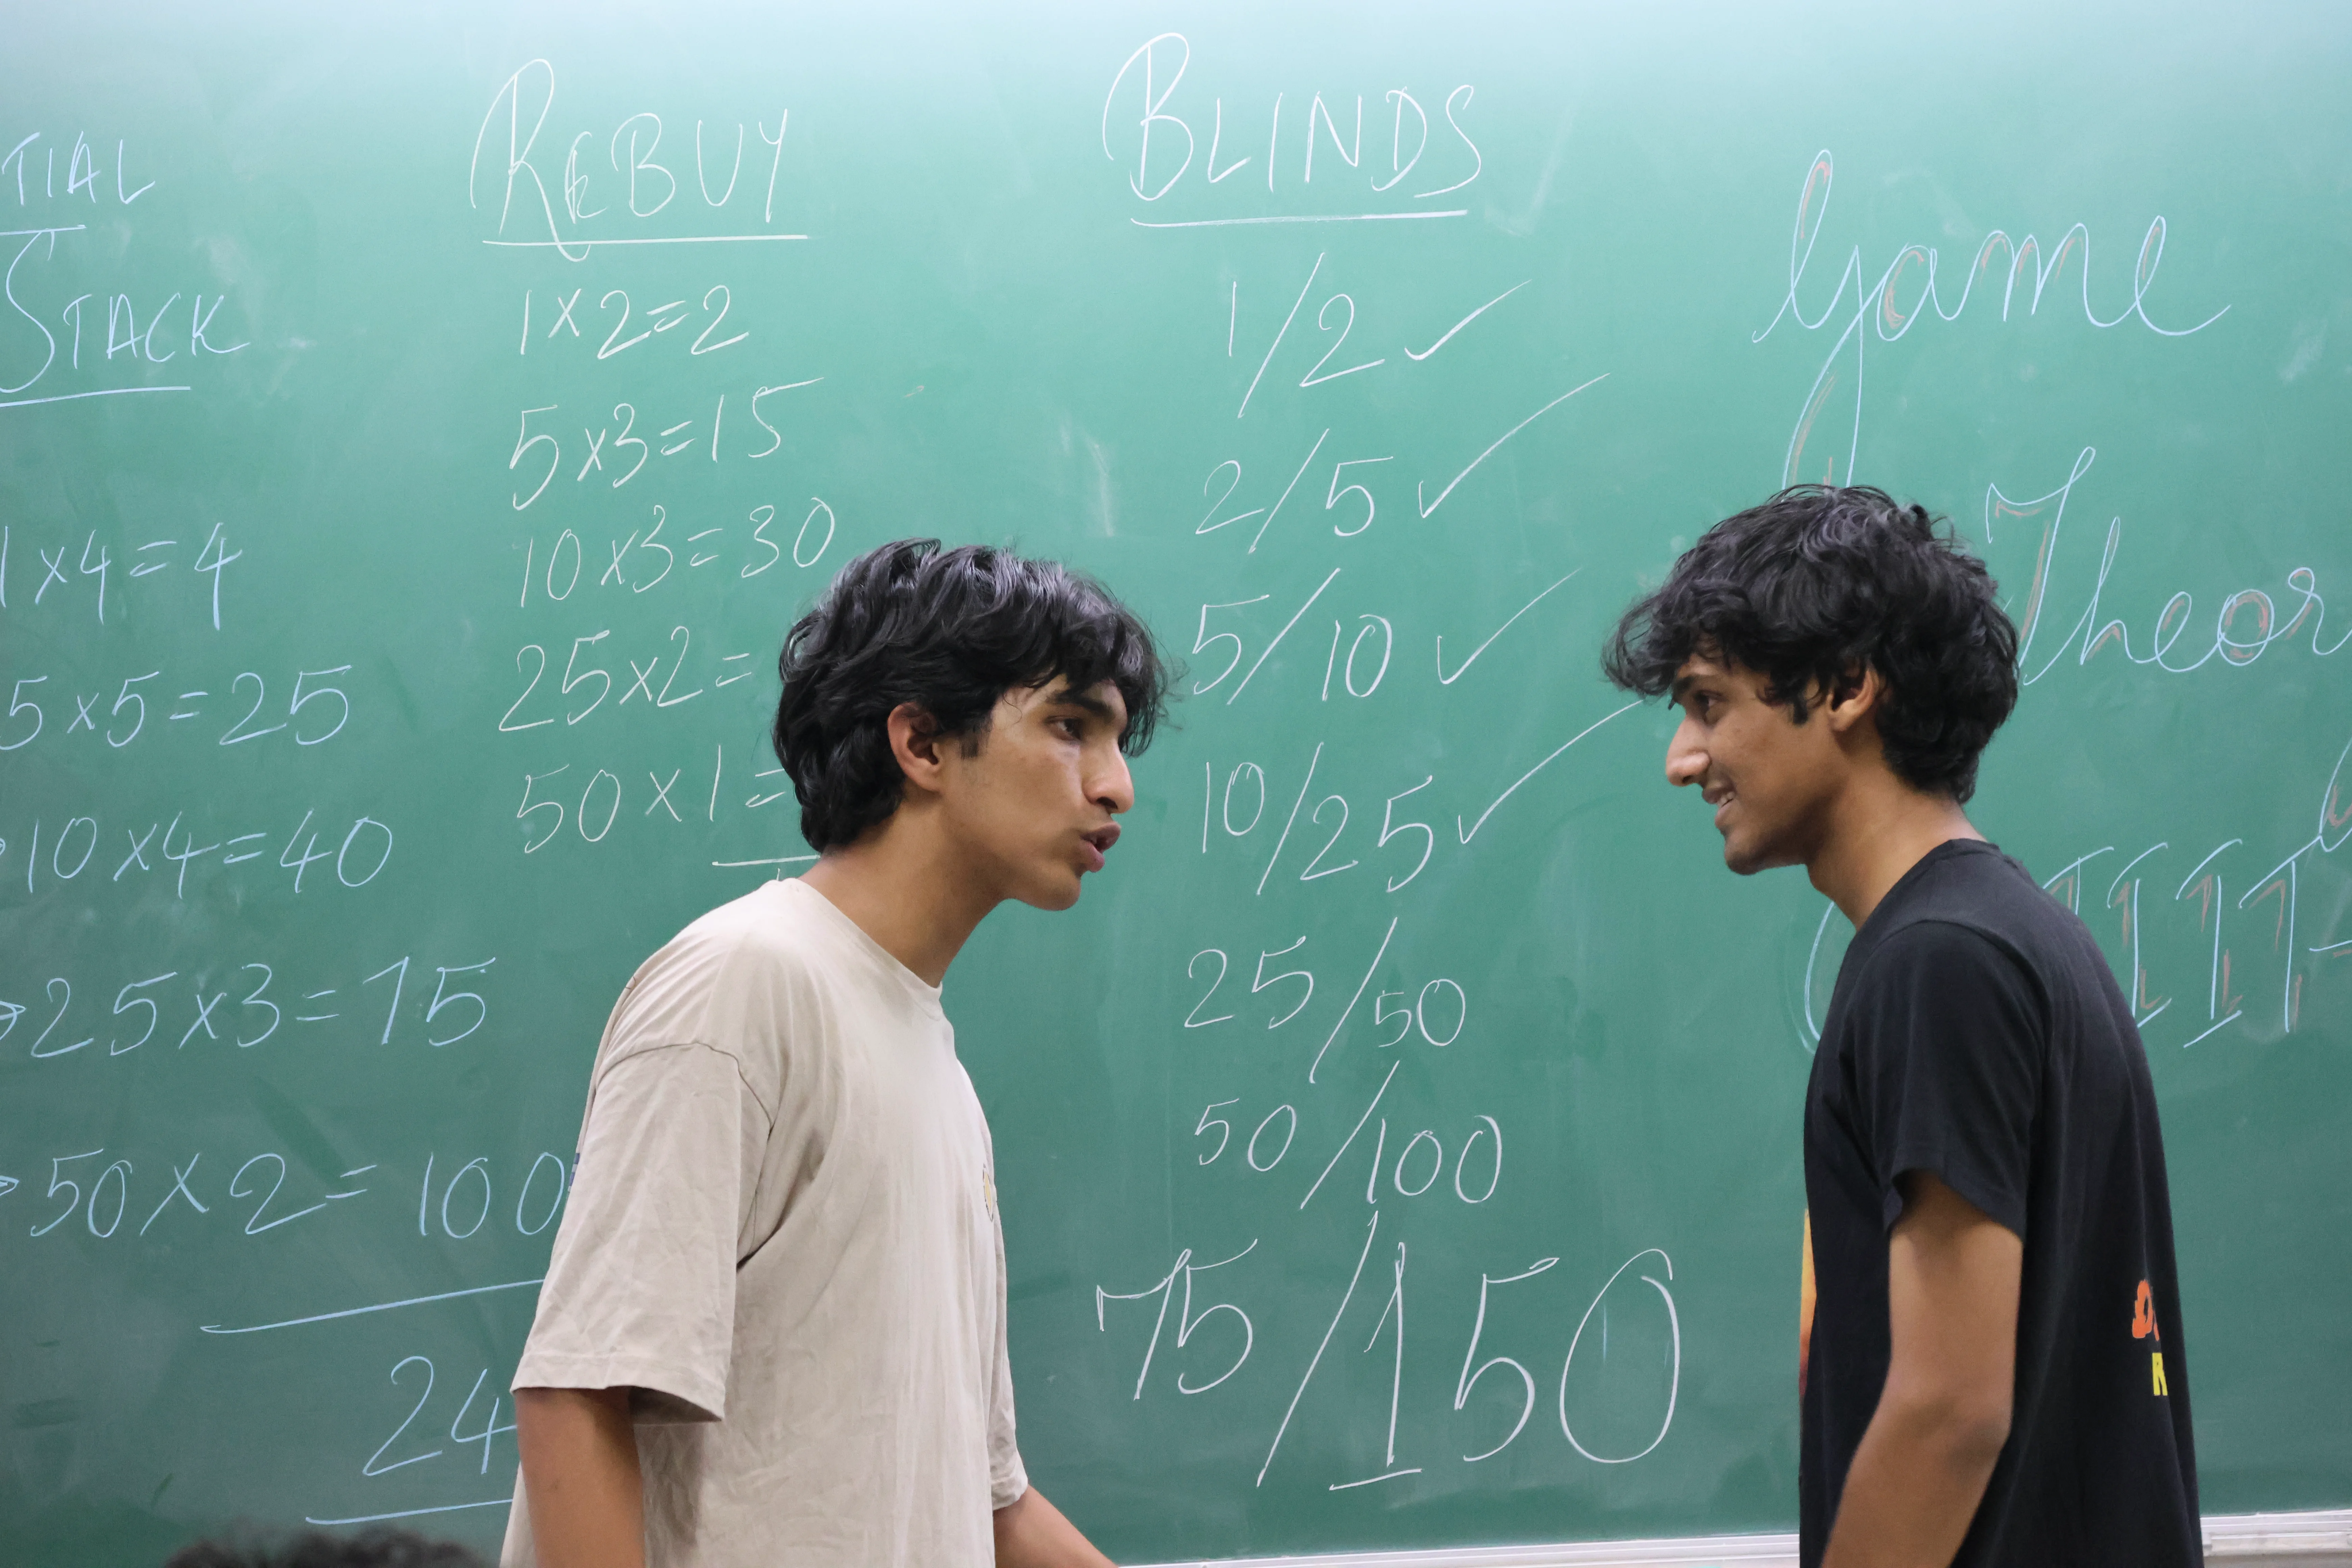 TIAL
STACK
1x4=4
5x5=25
10x4=40
25x3=75
50x2=100
24
REBUY
1x2=2
5x3=15
10x3=30
25x2=
50x1=
BLINDS
1/2 ✓
2/5 ✓
5/10 ✓
10/25 ✓
25/50
50/100
75/150
Game
Theor
IIIT
R